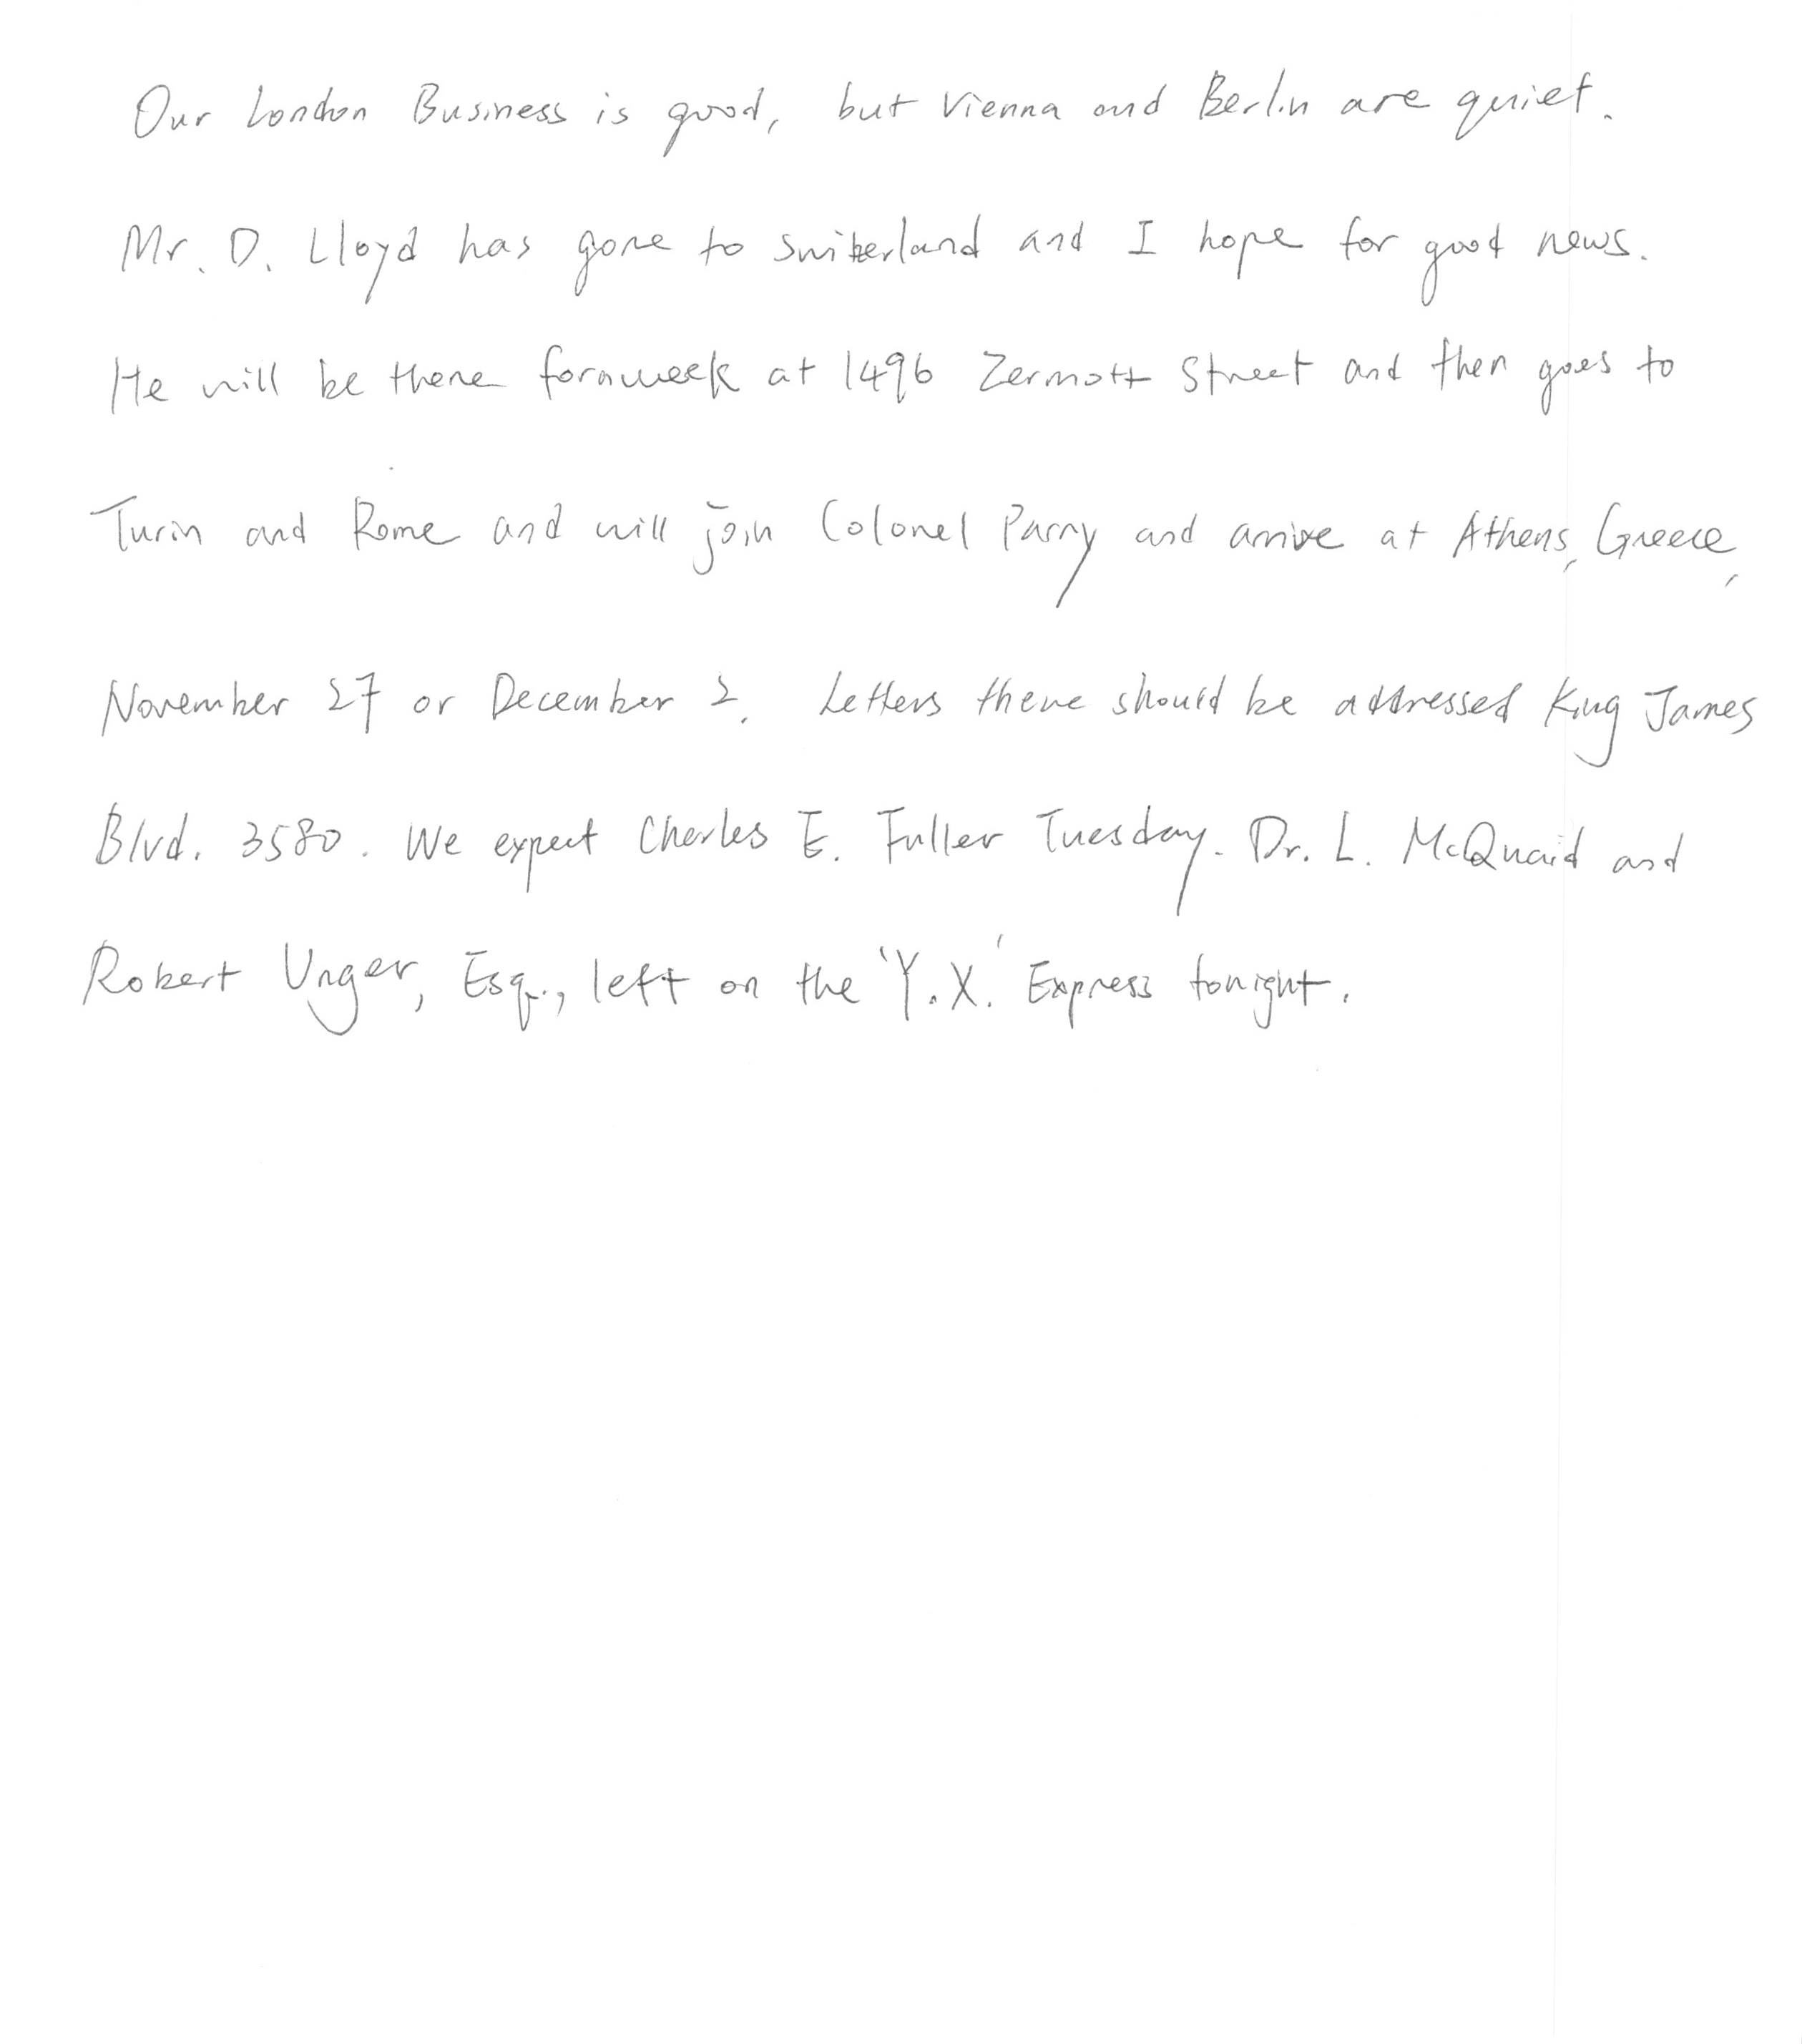 Our London Business is good, but Vienna and Berlin are quiet.
Mr. D. Lloyd has gone to Switzerland and I hope for good news.
He will be there for a week at 1496 Zermott Street and then goes to
Turin and Rome and will join Colonel Parry and arrive at Athens, Greece,
November 27 or December 2. Letters there should be addressed King James
Blvd. 3580. We expect Charles E. Fuller Tuesday. Dr. L. McQuaid and
Robert Unger, Esq., left on the 'Y.X.' Express tonight.